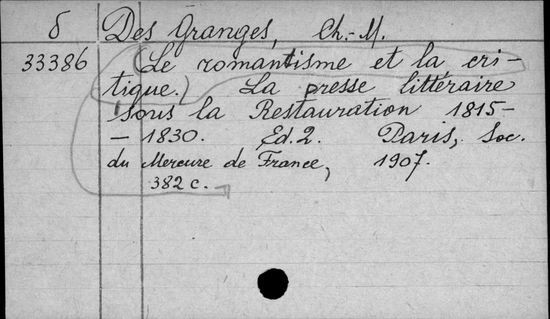 б Des Granges, Ch.-M.
33386 (Le romantisme et la cri-
tique.) La presse littéraire
sous la Restauration 1815-
- 1830. Ed. 2. Paris, Soc.
du Mercure de France, 1907.
382 c.